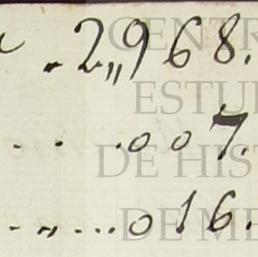 . 2,,968.
. . . 007.
. ,, . . . 016.
CENTR
ESTU
DE HIST
DE ME